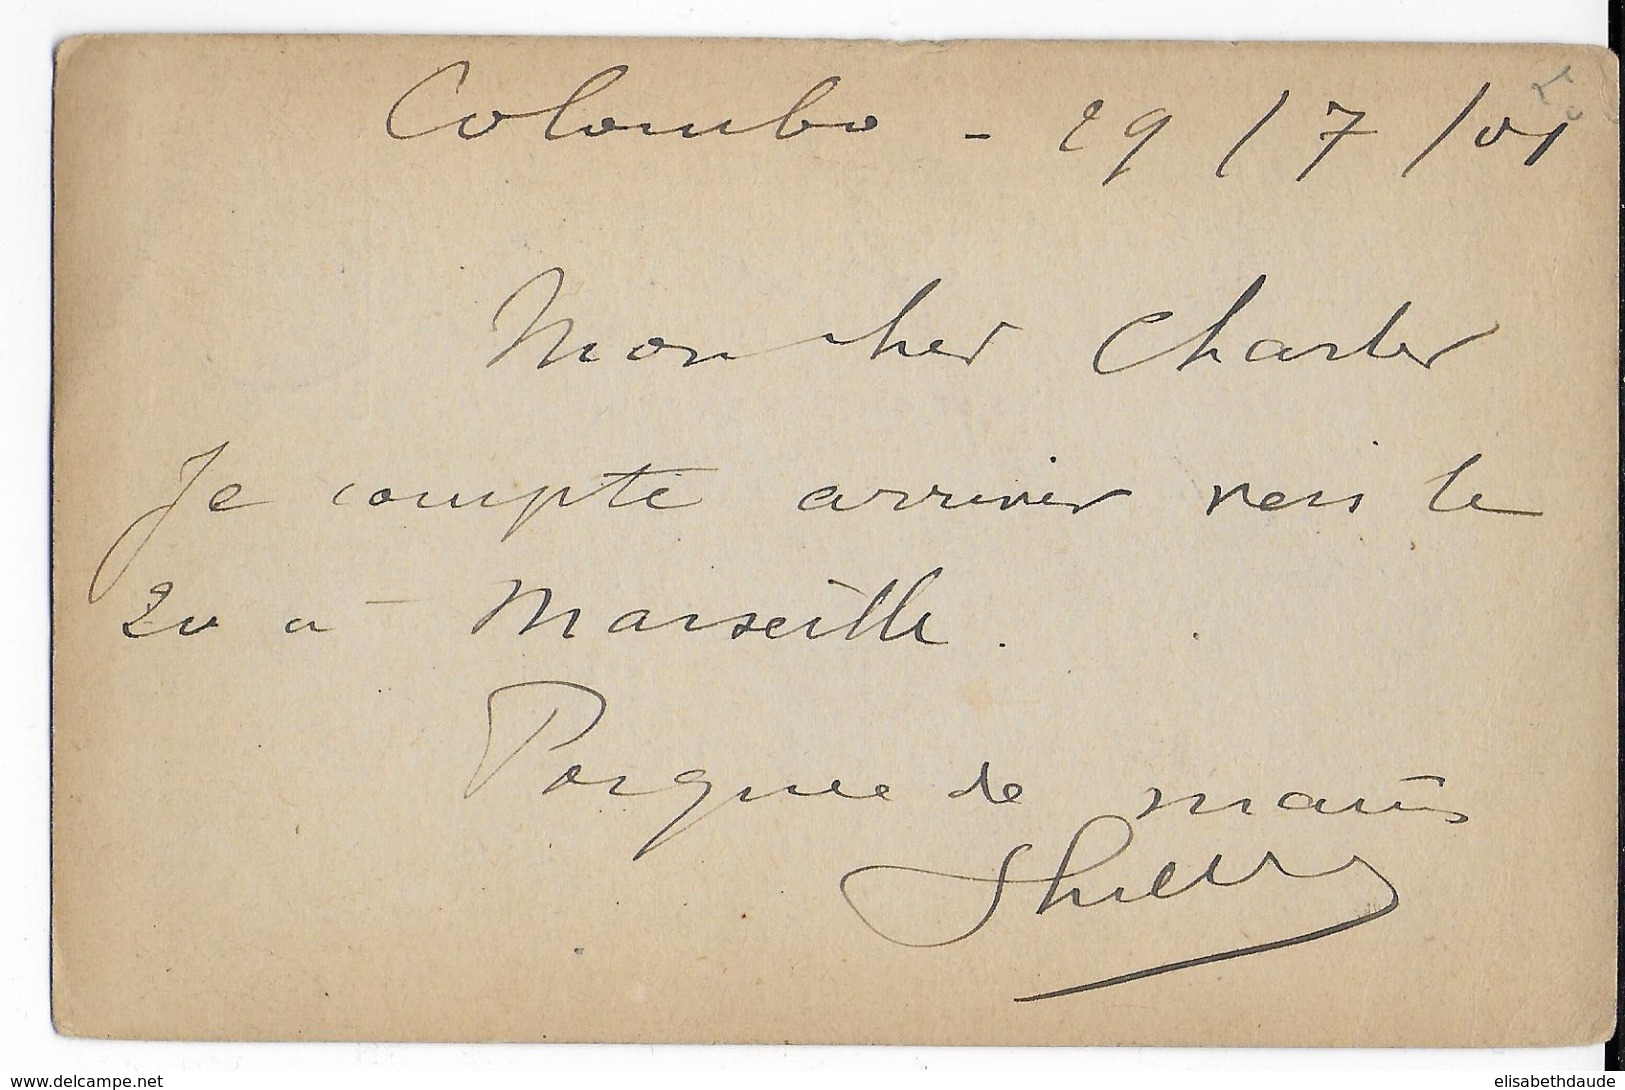 Colombo - 29/7/01
Mon cher Charles
Je compte arriver vers le
20 à Marseille.
Poignée de mains
www.delcampe.net
elisabethdaude